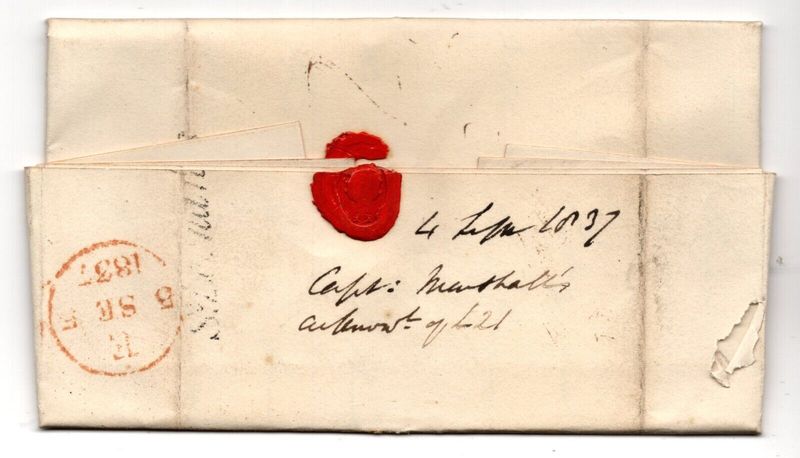 4 Sepr 1837
Capt: Marshall's
acknowt. of L21
R
5 SE 5
1837